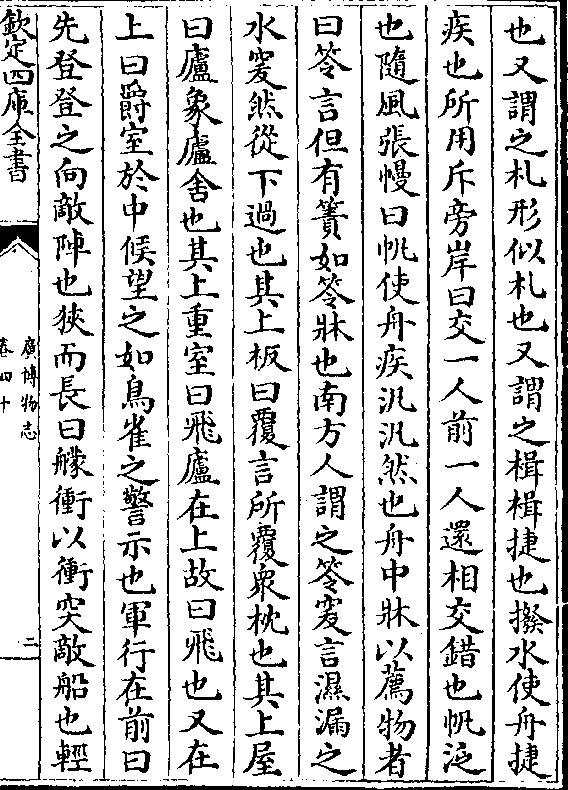 也又謂之札形似札也又謂之楫楫捷也撥水使舟捷
疾也所用斥旁岸曰交一人前一人還相交錯也帆泛
也隨風張幔曰帆使舟疾汎汎然也舟中牀以薦物者
曰笭言但有簀如笭牀也南方人謂之笭窔言濕漏之
水窔然從下過也其上板曰覆言所覆衆枕也其上屋
曰廬象廬舍也其上重室曰飛廬在上故曰飛也又在
上曰爵室於中候望之如鳥雀之警示也軍行在前曰
先登登之向敵陣也狹而長曰艨衝以衝突敵船也輕
欽定四庫全書
廣博物志
卷四十
二